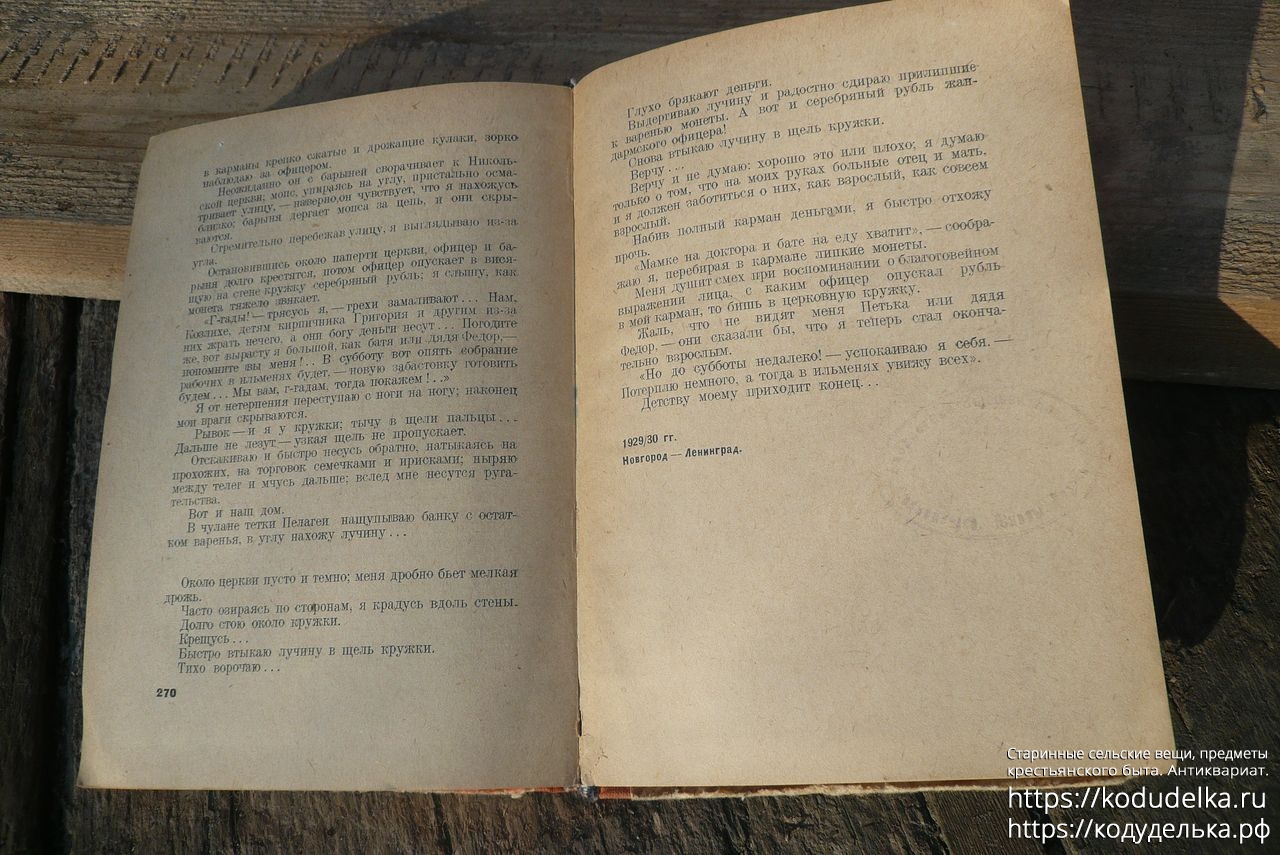 в карманы крепко сжатые и дрожащие кулаки, зорко
наблюдаю за офицером.
Неожиданно он с барыней сворачивает к Николь-
ской церкви; мопс, упираясь на углу, пристально осма-
тривает улицу, — наверно, он чувствует, что я нахожусь
близко; барыня дергает мопса за цепь, и они скры-
ваются.
Стремительно перебежав улицу, я выглядываю из-за
угла.
Остановившись около паперти церкви, офицер и ба-
рыня долго крестятся, потом офицер опускает в вися-
щую на стене кружку серебряный рубль; я слышу, как
монета тяжело звякает.
«Г-гады! — трясусь я, — грехи замаливают... Нам,
Козлихе, детям кирпичника Григория и другим из-за
них жрать нечего, а они богу деньги несут... Погодите
же, вот вырасту я большой, как батя или дядя Федор, —
попомните вы меня!.. В субботу вот опять собрание
рабочих в ильменях будет, — новую забастовку готовить
будем... Мы вам, г-гадам, тогда покажем!..»
Я от нетерпения переступаю с ноги на ногу; наконец
мои враги скрываются.
Рывок — и я у кружки; тычу в щели пальцы...
Дальше не лезут — узкая щель не пропускает.
Отскакиваю и быстро несусь обратно, натыкаясь на
прохожих, на торговок семечками и ирисками; ныряю
между телег и мчусь дальше; вслед мне несутся руга-
тельства.
Вот и наш дом.
В чулане тетки Пелагеи нащупываю банку с остат-
ком варенья, в углу нахожу лучину...
Около церкви пусто и темно; меня дробно бьет мелкая
дрожь.
Часто озираясь по сторонам, я крадусь вдоль стены.
Долго стою около кружки.
Крещусь...
Быстро втыкаю лучину в щель кружки.
Тихо ворочаю...
270
Глухо брякают деньги.
Выдергиваю лучину и радостно сдираю прилипшие
к варенью монеты. А вот и серебряный рубль жан-
дармского офицера!
Снова втыкаю лучину в щель кружки.
Верчу...
Верчу и не думаю: хорошо это или плохо; я думаю
только о том, что на моих руках больные отец и мать,
и я должен заботиться о них, как взрослый, как совсем
взрослый.
Набив полный карман деньгами, я быстро отхожу
прочь.
«Мамке на доктора и бате на еду хватит», — сообра-
жаю я, перебирая в кармане липкие монеты.
Меня душит смех при воспоминании о благоговейном
выражении лица, с каким офицер опускал рубль
в мой карман, то бишь в церковную кружку.
Жаль, что не видят меня Петька или дядя
Федор, — они сказали бы, что я теперь стал оконча-
тельно взрослым.
«Но до субботы недалеко! — успокаиваю я себя. —
Потерплю немного, а тогда в ильменях увижу всех».
Детству моему приходит конец...
1929/30 гг.
Новгород — Ленинград.
Старинные сельские вещи, предметы
крестьянского быта. Антиквариат.
https://kodudelka.ru
https://кодуделька.рф